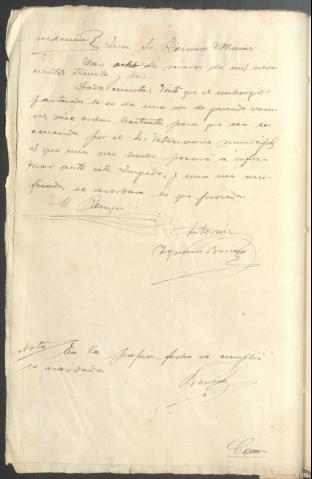 Providencia} Juez Sr. Romero
Dos ocho de marzo de mil nove
cientos treinta y seis.
Dada cuenta: Visto que el embargo
practicado lo es de una res de ganado vacu
no dése orden bastante para que sea re
conocida por el Sr. Veterinario municipal
el que una vez hecho pasará a infor
mar ante este Juzgado, y una vez veri
ficado, se acordará lo que proceda.
M. Romero
Ante mí
Ignacio
Nota/ En la propia fecha se cumplió
lo acordado.